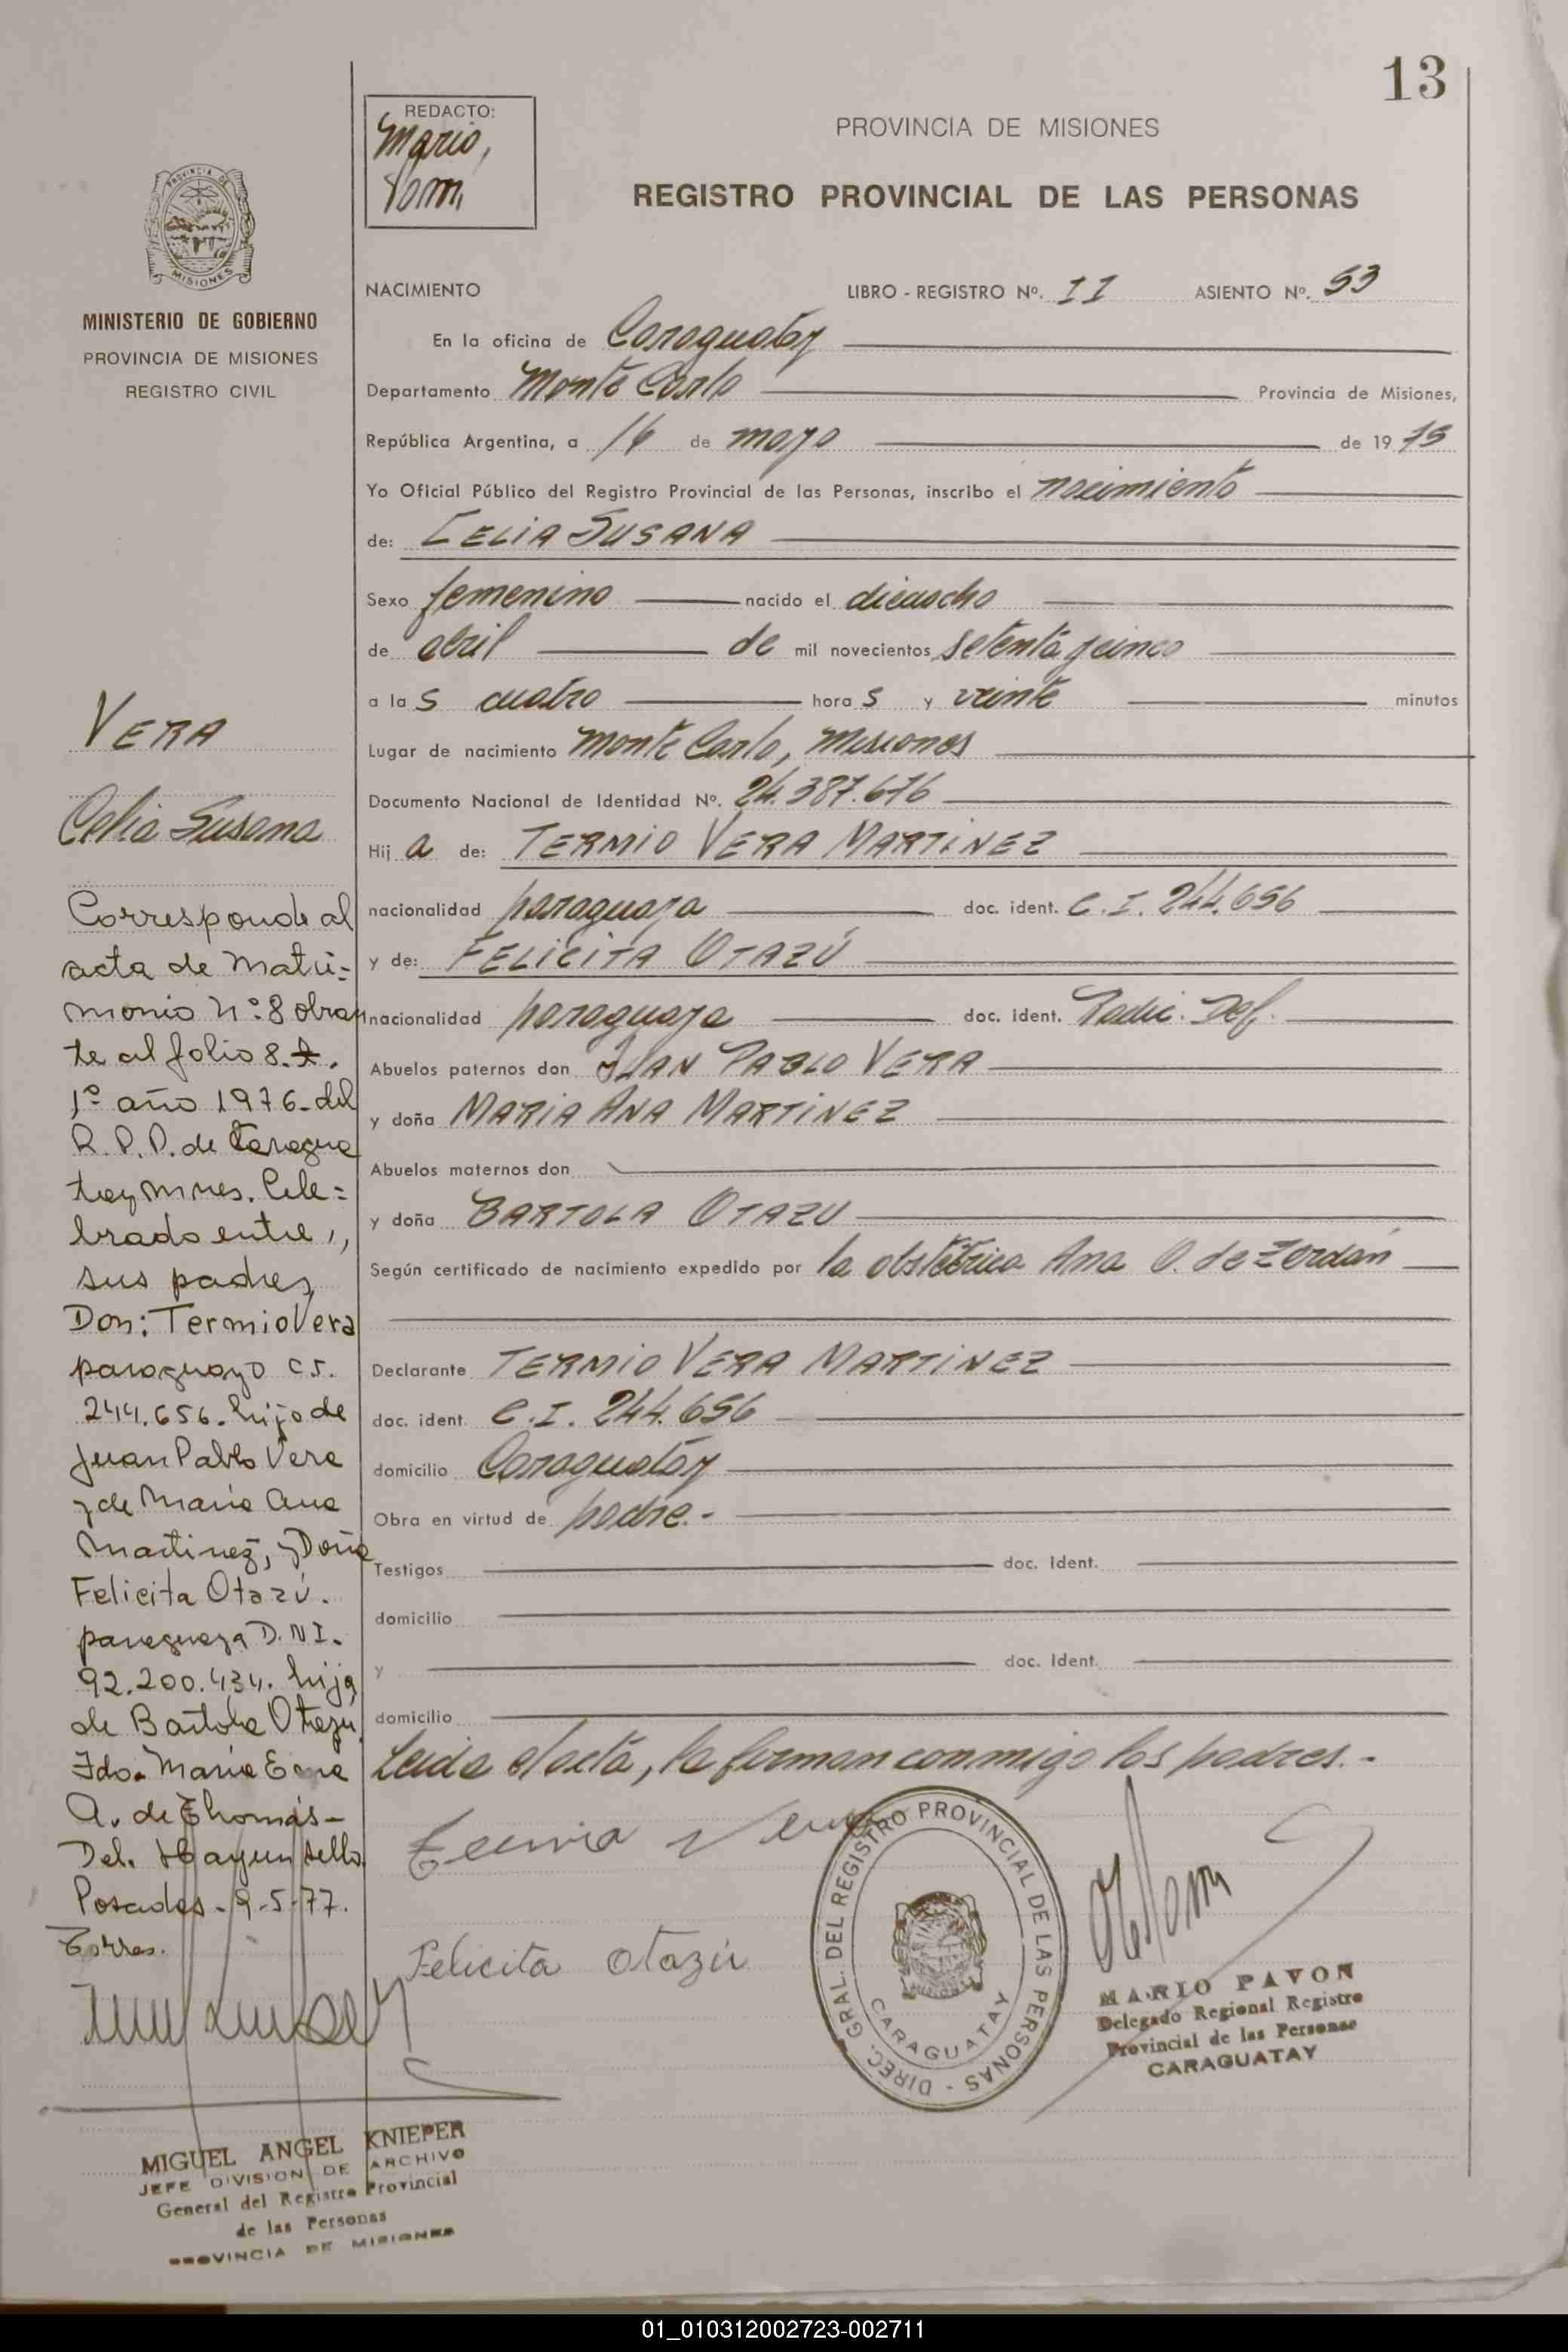 13
REDACTO:
Mario,
PROVINCIA DE MISIONES
REGISTRO PROVINCIAL DE LAS PERSONAS
PROVINCIA DE
MISIONES
MINISTERIO DE GOBIERNO
PROVINCIA DE MISIONES
REGISTRO CIVIL
NACIMIENTO LIBRO - REGISTRO Nº. II ASIENTO Nº. 53
En la oficina de Caraguatay
Departamento Monte Carlo Provincia de Misiones,
República Argentina, a 16 de mayo de 1975
Yo Oficial Público del Registro Provincial de las Personas, inscribo el nacimiento
de: CELIA SUSANA
Sexo femenino nacido el dieciocho
de abril de mil novecientos setenta y cinco
a las cuatro horas y veinte minutos
Lugar de nacimiento Monte Carlo, Misiones
Documento Nacional de Identidad Nº. 24.387.676
Hija de: TERMIO VERA MARTINEZ
nacionalidad paraguaya doc. ident. C.I. 244.656
y de: FELICITA OTAZÚ
nacionalidad paraguaya doc. ident. Radic. Def.
Abuelos paternos don JUAN PABLO VERA
y doña MARIA ANA MARTINEZ
Abuelos maternos don
y doña BARTOLA OTAZU
Según certificado de nacimiento expedido por la obstétrica Ana O. de Zordan
Declarante TERMIO VERA MARTINEZ
doc. ident. C.I. 244.656
domicilio Caraguatáy
Obra en virtud de padre.-
Testigos doc. Ident.
domicilio
y doc. Ident.
domicilio
Leida el acta, la firman conmigo los padres.-
VERA
Celia Susana
Corresponde al
acta de Matri=
monio nº:8 obran
te al folio 8.t.
1º año 1976. del
R.P.P. de Caragua
tay mnes. Cele=
brado entre
sus padres
Don: Termio Vera
paraguayo C.I.
244.656. hijo de
Juan Pablo Vera
y de Maria Ana
Martinez, y Doña
Felicita Otazú.
paraguaya D.N.I.
92.200.434. hija
de Bartola Otazu
Fdo. Maria Ema
A. de Thomas-
Del. Hay un sello
Posadas-9-5-77.
Torres.
Termio Vera
Felicita Otazú
DIREC. GRAL. DEL REGISTRO PROVINCIAL DE LAS PERSONAS -
CARAGUATAY
MARIO PAVON
Delegado Regional Registro
Provincial de las Personas
CARAGUATAY
MIGUEL ANGEL KNIEPER
JEFE DIVISION DE ARCHIVO
General del Registro Provincial
de las Personas
PROVINCIA DE MISIONES
01_010312002723-002711